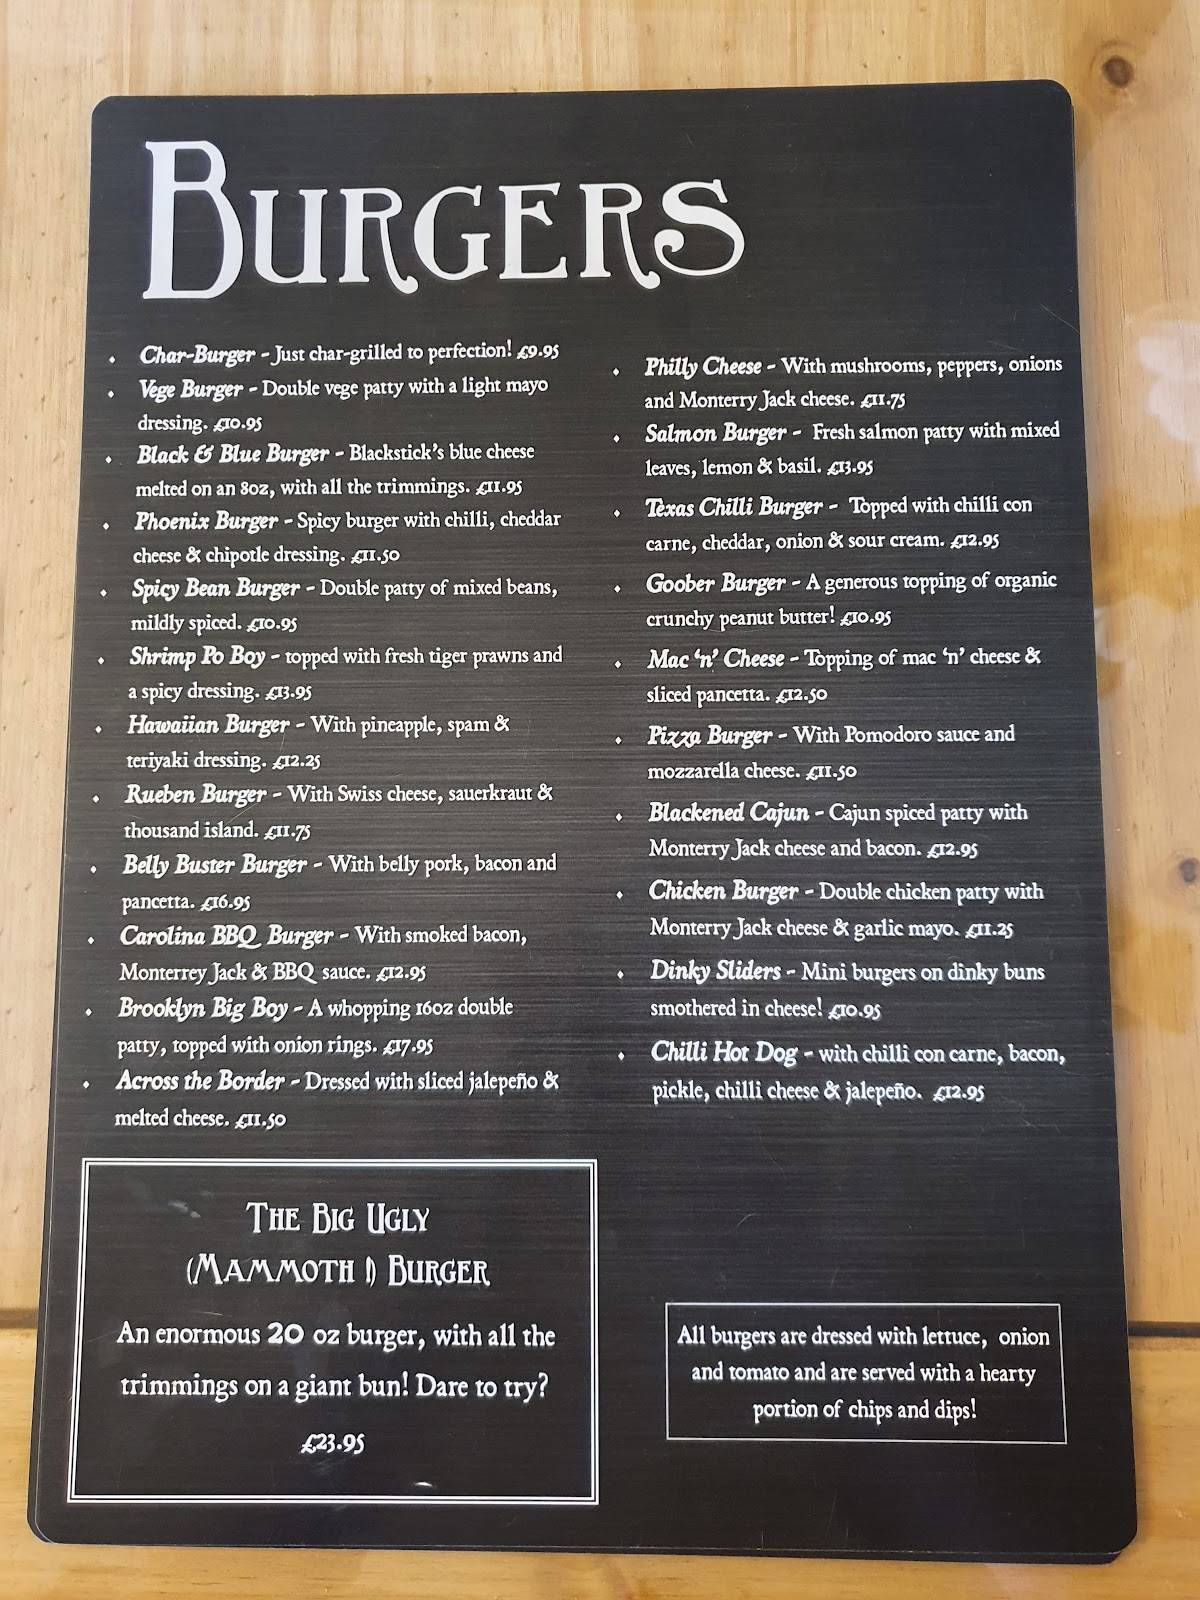 BURGERS
Char-Burger - Just char-grilled to perfection! £9.95
Vege Burger - Double vege patty with a light mayo
dressing. £10.95
Black & Blue Burger - Blackstick's blue cheese
melted on an 8oz, with all the trimmings. £11.95
Phoenix Burger - Spicy burger with chilli, cheddar
cheese & chipotle dressing. £11.50
Spicy Bean Burger - Double patty of mixed beans,
mildly spiced. £10.95
Shrimp Po Boy - topped with fresh tiger prawns and
a spicy dressing. £13.95
Hawaiian Burger - With pineapple, spam &
teriyaki dressing. £12.25
Rueben Burger - With Swiss cheese, sauerkraut &
thousand island. £11.75
Belly Buster Burger - With belly pork, bacon and
pancetta. £16.95
Carolina BBQ Burger - With smoked bacon,
Monterrey Jack & BBQ sauce. £12.95
Brooklyn Big Boy - A whopping 16oz double
patty, topped with onion rings. £17.95
Across the Border - Dressed with sliced jalepeño &
melted cheese. £11.50
THE BIG UGLY
(MAMMOTH !) BURGER
An enormous 20 oz burger, with all the
trimmings on a giant bun! Dare to try?
£23.95
Philly Cheese - With mushrooms, peppers, onions
and Monterry Jack cheese. £11.75
Salmon Burger - Fresh salmon patty with mixed
leaves, lemon & basil. £13.95
Texas Chilli Burger - Topped with chilli con
carne, cheddar, onion & sour cream. £12.95
Goober Burger - A generous topping of organic
crunchy peanut butter! £10.95
Mac 'n' Cheese - Topping of mac 'n' cheese &
sliced pancetta. £12.50
Pizza Burger - With Pomodoro sauce and
mozzarella cheese. £11.50
Blackened Cajun - Cajun spiced patty with
Monterry Jack cheese and bacon. £12.95
Chicken Burger - Double chicken patty with
Monterry Jack cheese & garlic mayo. £11.25
Dinky Sliders - Mini burgers on dinky buns
smothered in cheese! £10.95
Chilli Hot Dog - with chilli con carne, bacon,
pickle, chilli cheese & jalepeño. £12.95
All burgers are dressed with lettuce, onion
and tomato and are served with a hearty
portion of chips and dips!